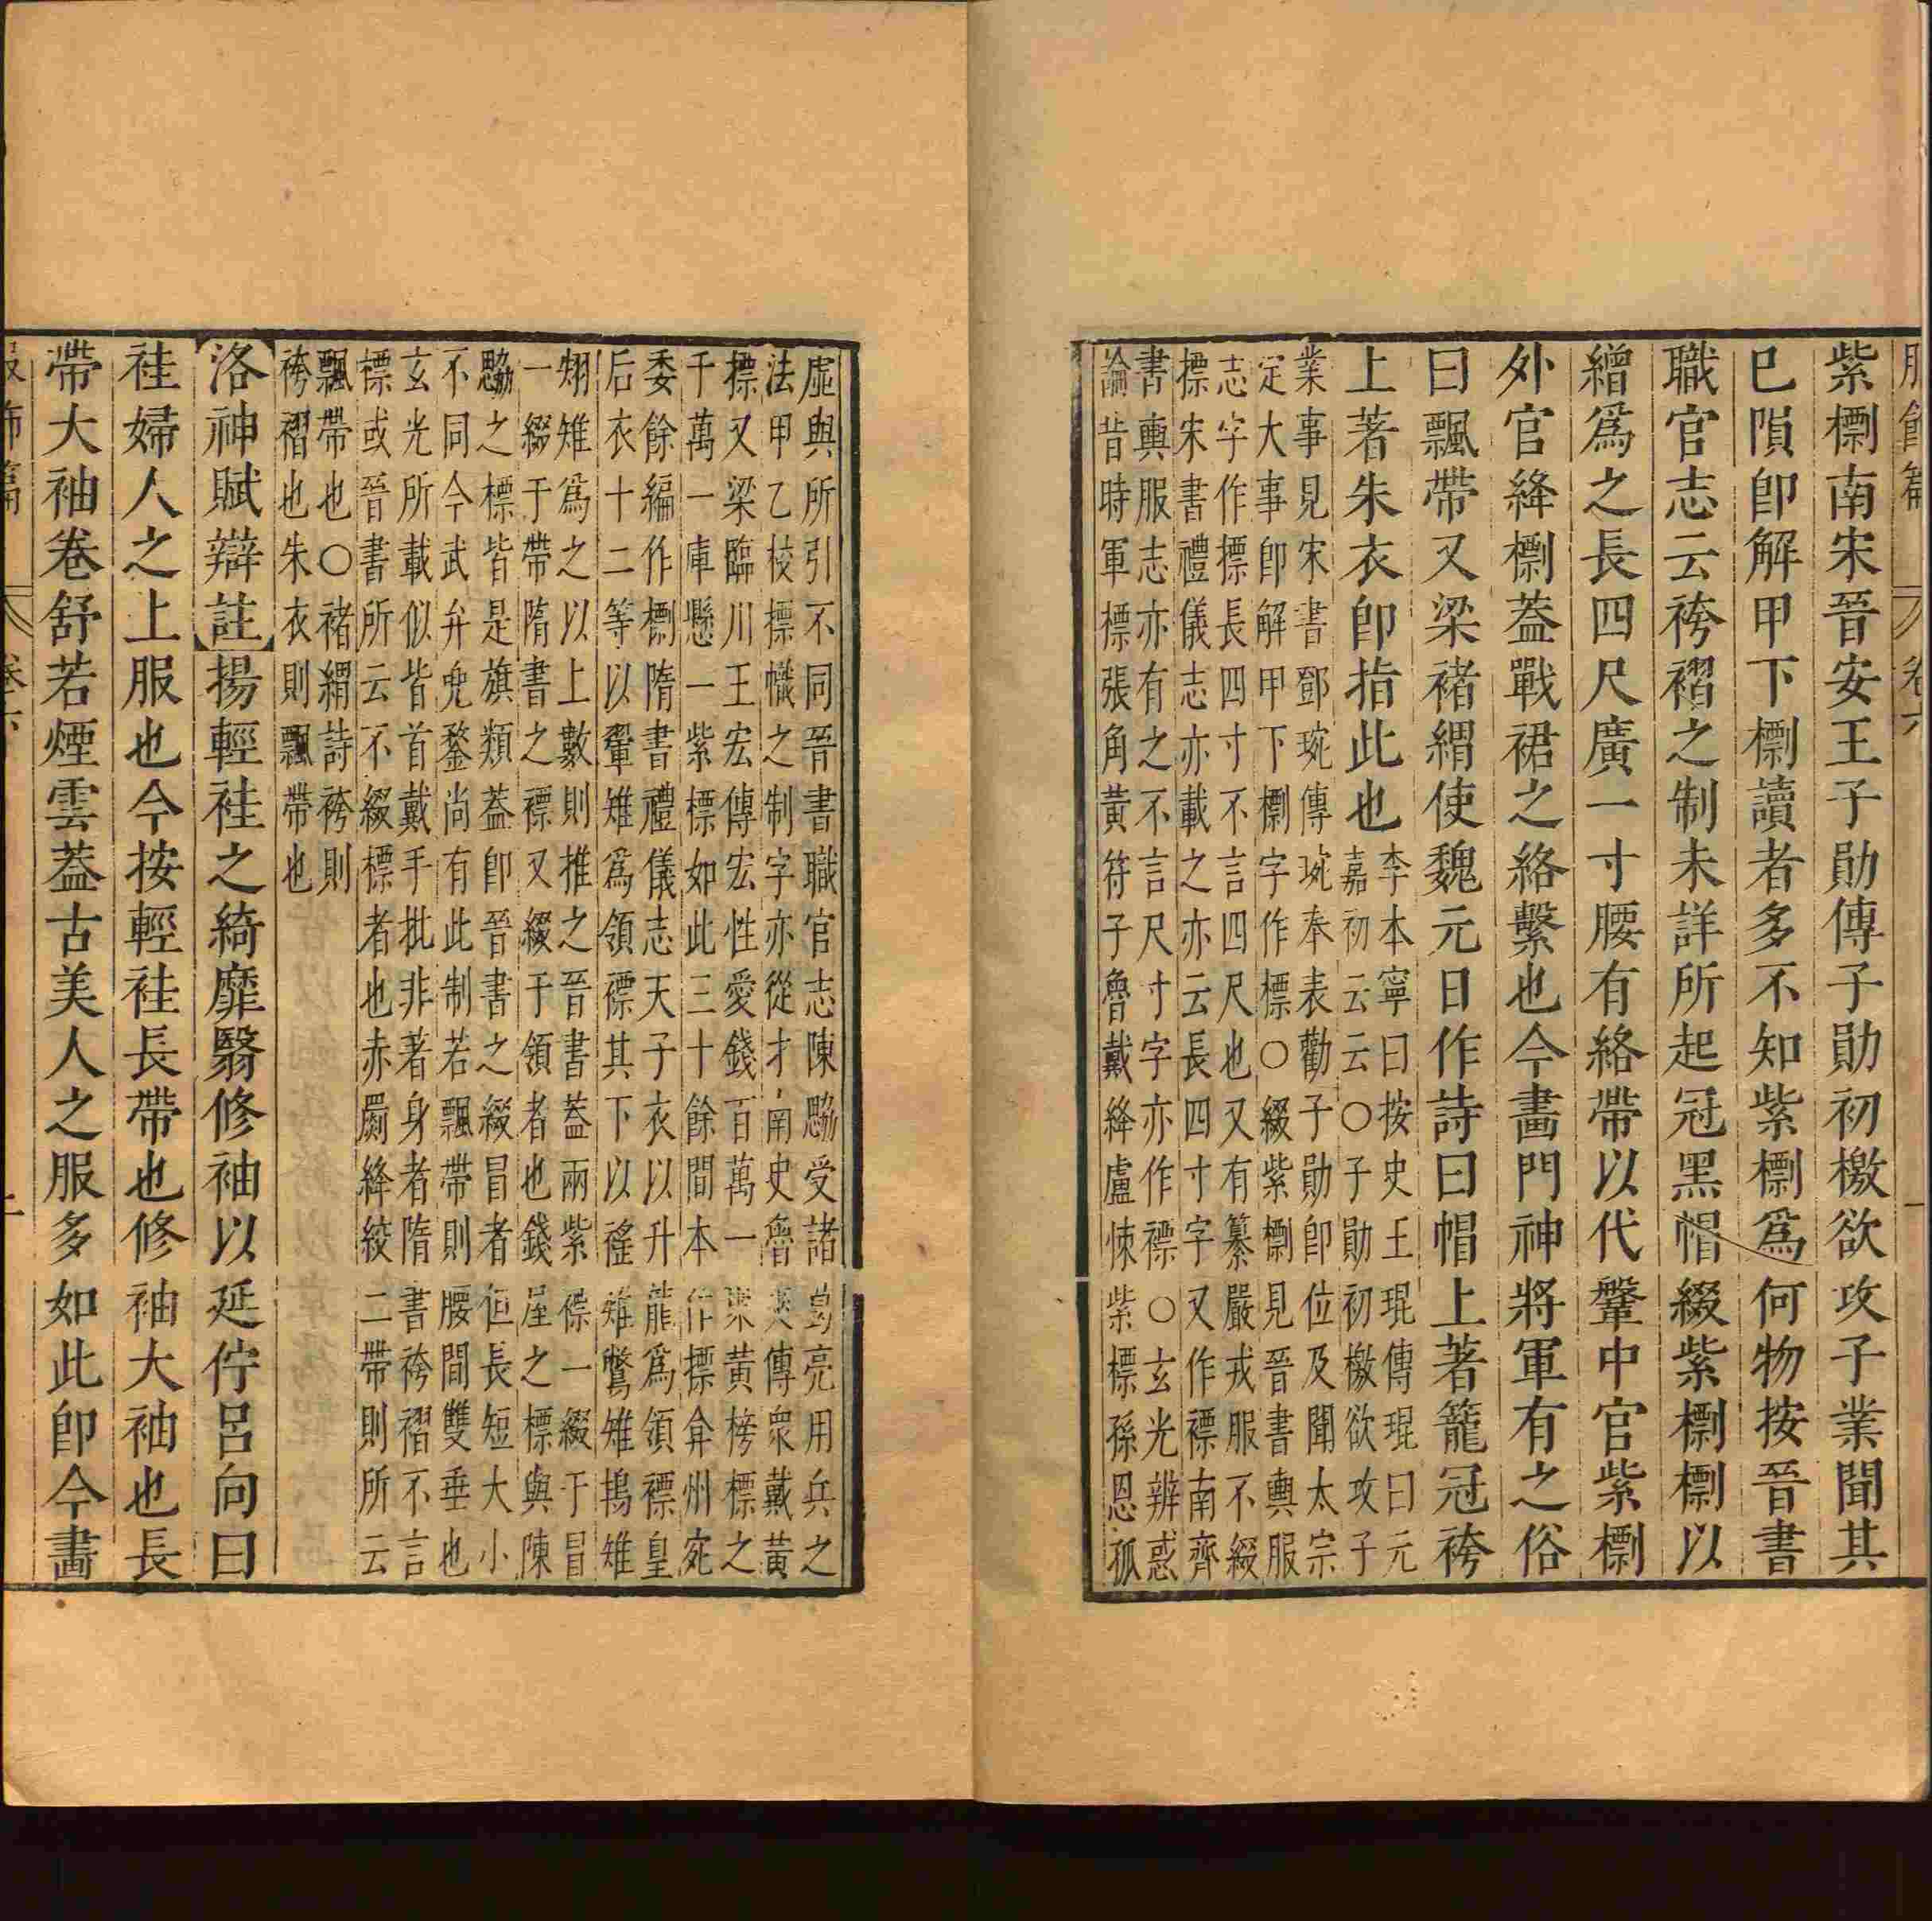 紫褾南宋晉安王子勛傳子勛初檄欲攻子業聞其
巳隕卽解甲下褾讀者多不知紫褾爲何物按晉書
職官志云袴褶之制未詳所起冠黑帽綴紫褾褾以
繒爲之長四尺廣一寸腰有絡帶以代鞶中官紫褾
外官絳褾蓋戰裙之絡繫也今畫門神將軍有之俗
曰飄帶又梁褚緭使魏元日作詩曰帽上著籠冠袴
上著朱衣卽指此也
李本寧曰按史王琨傳琨曰元
嘉初云云○子勛初檄欲攻子
業事見宋書鄧琬傳琬奉表勸子勛卽位及聞太宗
定大事卽解甲下褾字作標○綴紫褾見晉書輿服
志字作標長四寸不言四尺也又有纂嚴戎服不綴
標宋書禮儀志亦載之亦云長四寸字又作褾南齊
書輿服志亦有之不言尺寸字亦作褾○玄光辨惑
論昔時軍標張角黃符子魯戴絳盧悚紫標孫恩孤
虛與所引不同晉書職官志陳勰受諸葛亮用兵之
法甲乙校標幟之制字亦從才南史魯爽傳眾戴黃
標又梁臨川王宏傳宏性愛錢百萬一聚黃榜標之
千萬一庫懸一紫標如此三十餘間本作標弇州宛
委餘編作褾隋書禮儀志天子衣以升龍爲領褾皇
后衣十二等以翬雉爲領褾其下以褕雉鷩雉搗雉
翙雉爲之以上數則推之晉書蓋兩紫褾一綴于冒
一綴于帶隋書之褾又綴于領者也錢屋之標與陳
勰之標皆是旗類蓋卽晉書之綴冒者但長短大小
不同今武弁兜鍪尚有此制若飄帶則腰間雙垂也
玄光所載似皆首戴手批非著身者隋書袴褶不言
標或晉書所云不綴標者也赤罽絳絞二帶則所云
飄帶也○褚緭詩袴則
袴褶也朱衣則飄帶也
【洛神賦辯註】揚輕袿之綺靡翳修袖以延佇呂向曰
袿婦人之上服也今按輕袿長帶也修袖大袖也長
帶大袖卷舒若煙雲蓋古美人之服多如此卽今畫